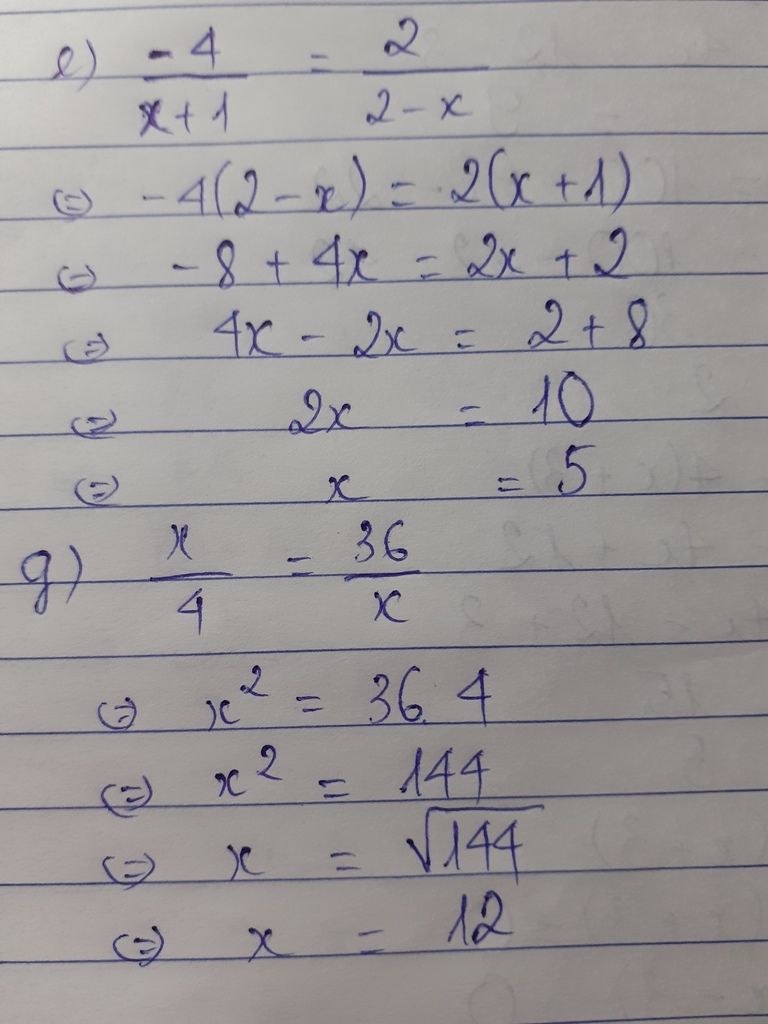 e) -4/(x+1) = 2/(2-x)
(=) -4(2-x) = 2(x+1)
(=) -8 + 4x = 2x + 2
(=) 4x - 2x = 2 + 8
(=) 2x = 10
(=) x = 5
g) x/4 = 36/x
(=) x² = 36.4
(=) x² = 144
(=) x = √144
(=) x = 12